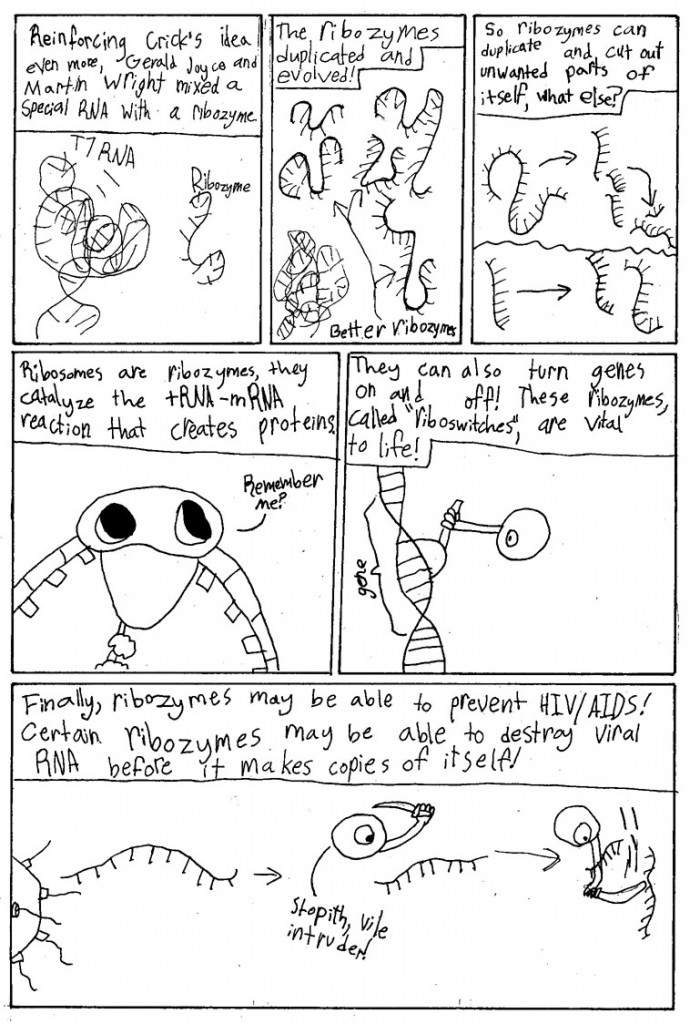 Reinforcing Crick's idea
even more, Gerald Joyce and
Martin Wright mixed a
Special RNA with a ribozyme
T7 RNA
Ribozyme
The ribozymes
duplicated and
evolved!
Better ribozymes
So ribozymes can
duplicate and cut out
unwanted parts of
itself, what else?
Ribosomes are ribozymes, they
catalyze the tRNA-mRNA
reaction that creates proteins.
Remember
me?
They can also turn genes
on and off! These ribozymes,
called "riboswitches", are vital
to life!
gene
Finally, ribozymes may be able to prevent HIV/AIDS!
Certain ribozymes may be able to destroy viral
RNA before it makes copies of itself!
Stopith, vile
intruder!